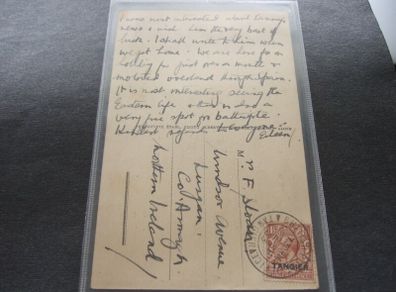 I was most interested about
news & wish him the very best of
luck. I shall write to him when
we get home. We are here for a
holiday for just over a month &
motored overland through Spain.
It is most interesting seeing the
Eastern life & there is also a
very fine spot for bathing
Kindest regards
Eileen
Mr F. Sloan
Windsor Avenue
Lurgan
Co. Armagh.
Northern Ireland
TANGIER